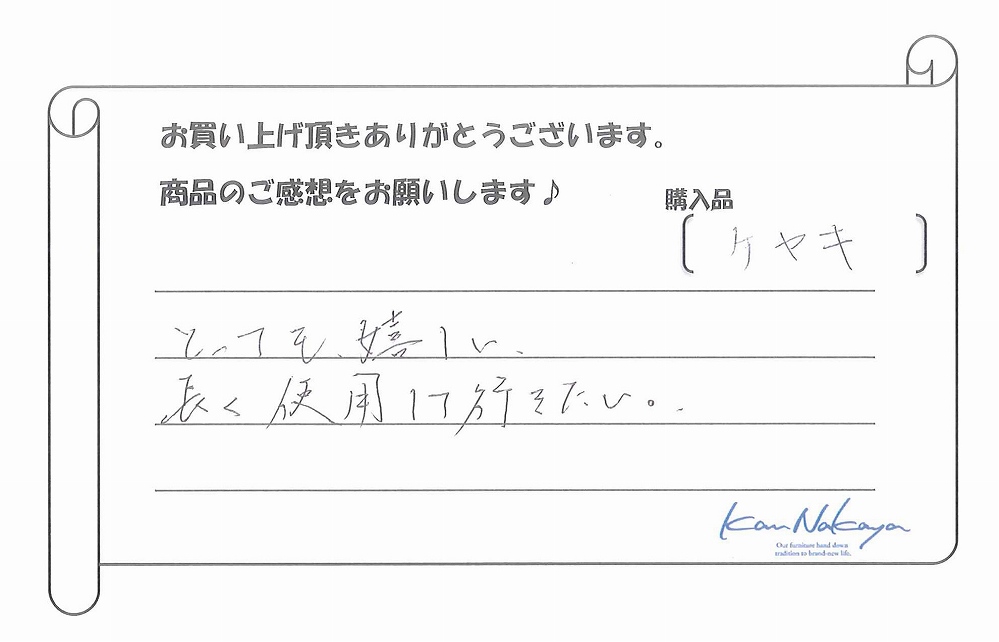 お買い上げ頂きありがとうございます。
商品のご感想をお願いします♪
購入品
ケヤキ
とっても、嬉しい、
長く使用して行きたい。
Kan Nakaya
Our furniture hand down
tradition to brand-new life.